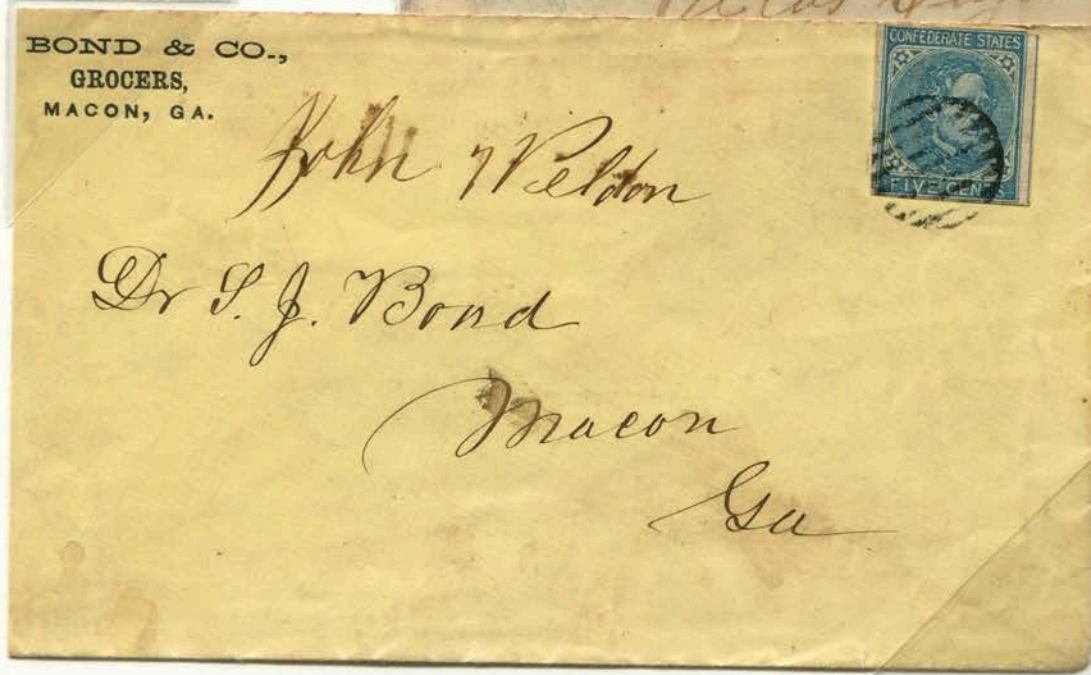 BOND & CO.,
GROCERS,
MACON, GA.
CONFEDERATE STATES
FIVE CENTS
John Weldon
Dr S. J. Bond
Macon
Ga